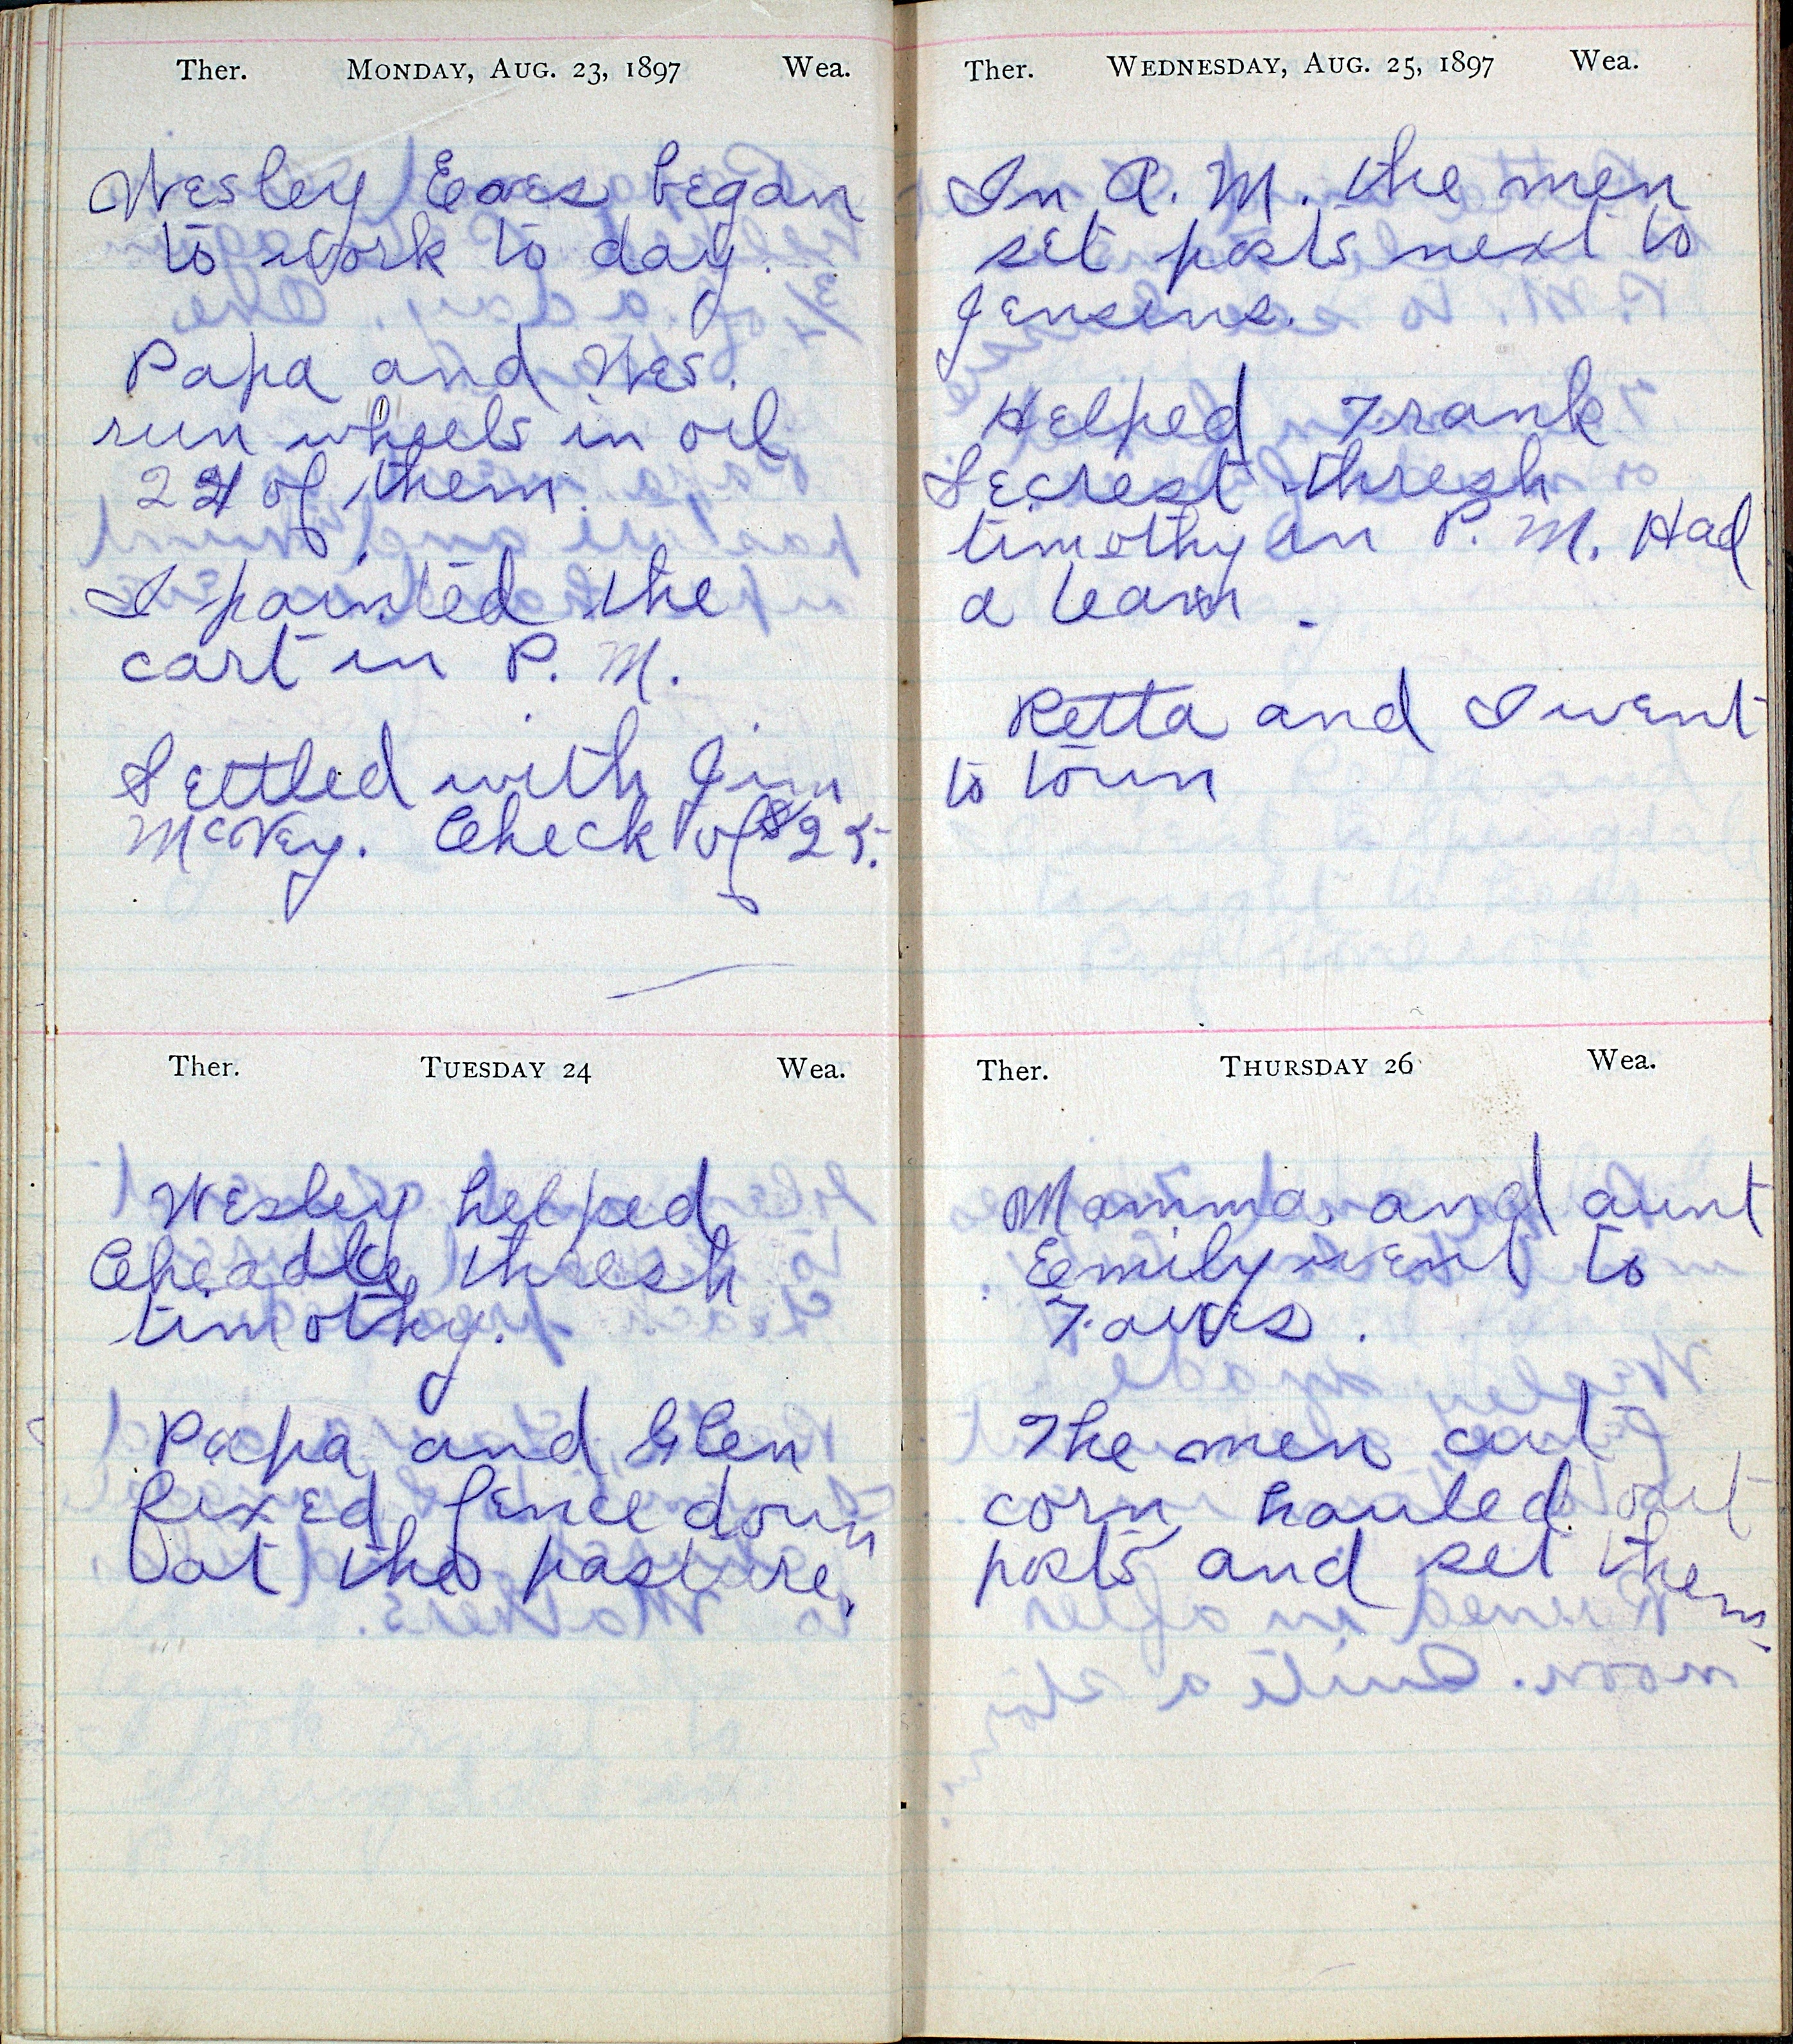 Ther. MONDAY, AUG. 23, 1897 Wea.
Wesley Eaves began
to work to day.
Papa and Wes.
run wheels in oil
24 of them.
I painted the
cart in P. M.
Settled with Jim
McVey. Check of $25.
Ther. TUESDAY 24 Wea.
Wesley helped
Cheadle thresh
timothy.
Papa and Glen
fixed fence down
at the pasture.
Ther. WEDNESDAY, AUG. 25, 1897 Wea.
In A. M. the men
set posts next to
Jensens.
Helped Frank
Secrest thresh
timothy in P. M. Had
a team.
Retta and I went
to town
Ther. THURSDAY 26 Wea.
Mamma and aunt
Emily went to
The men cut
corn hauled out
posts and set them.